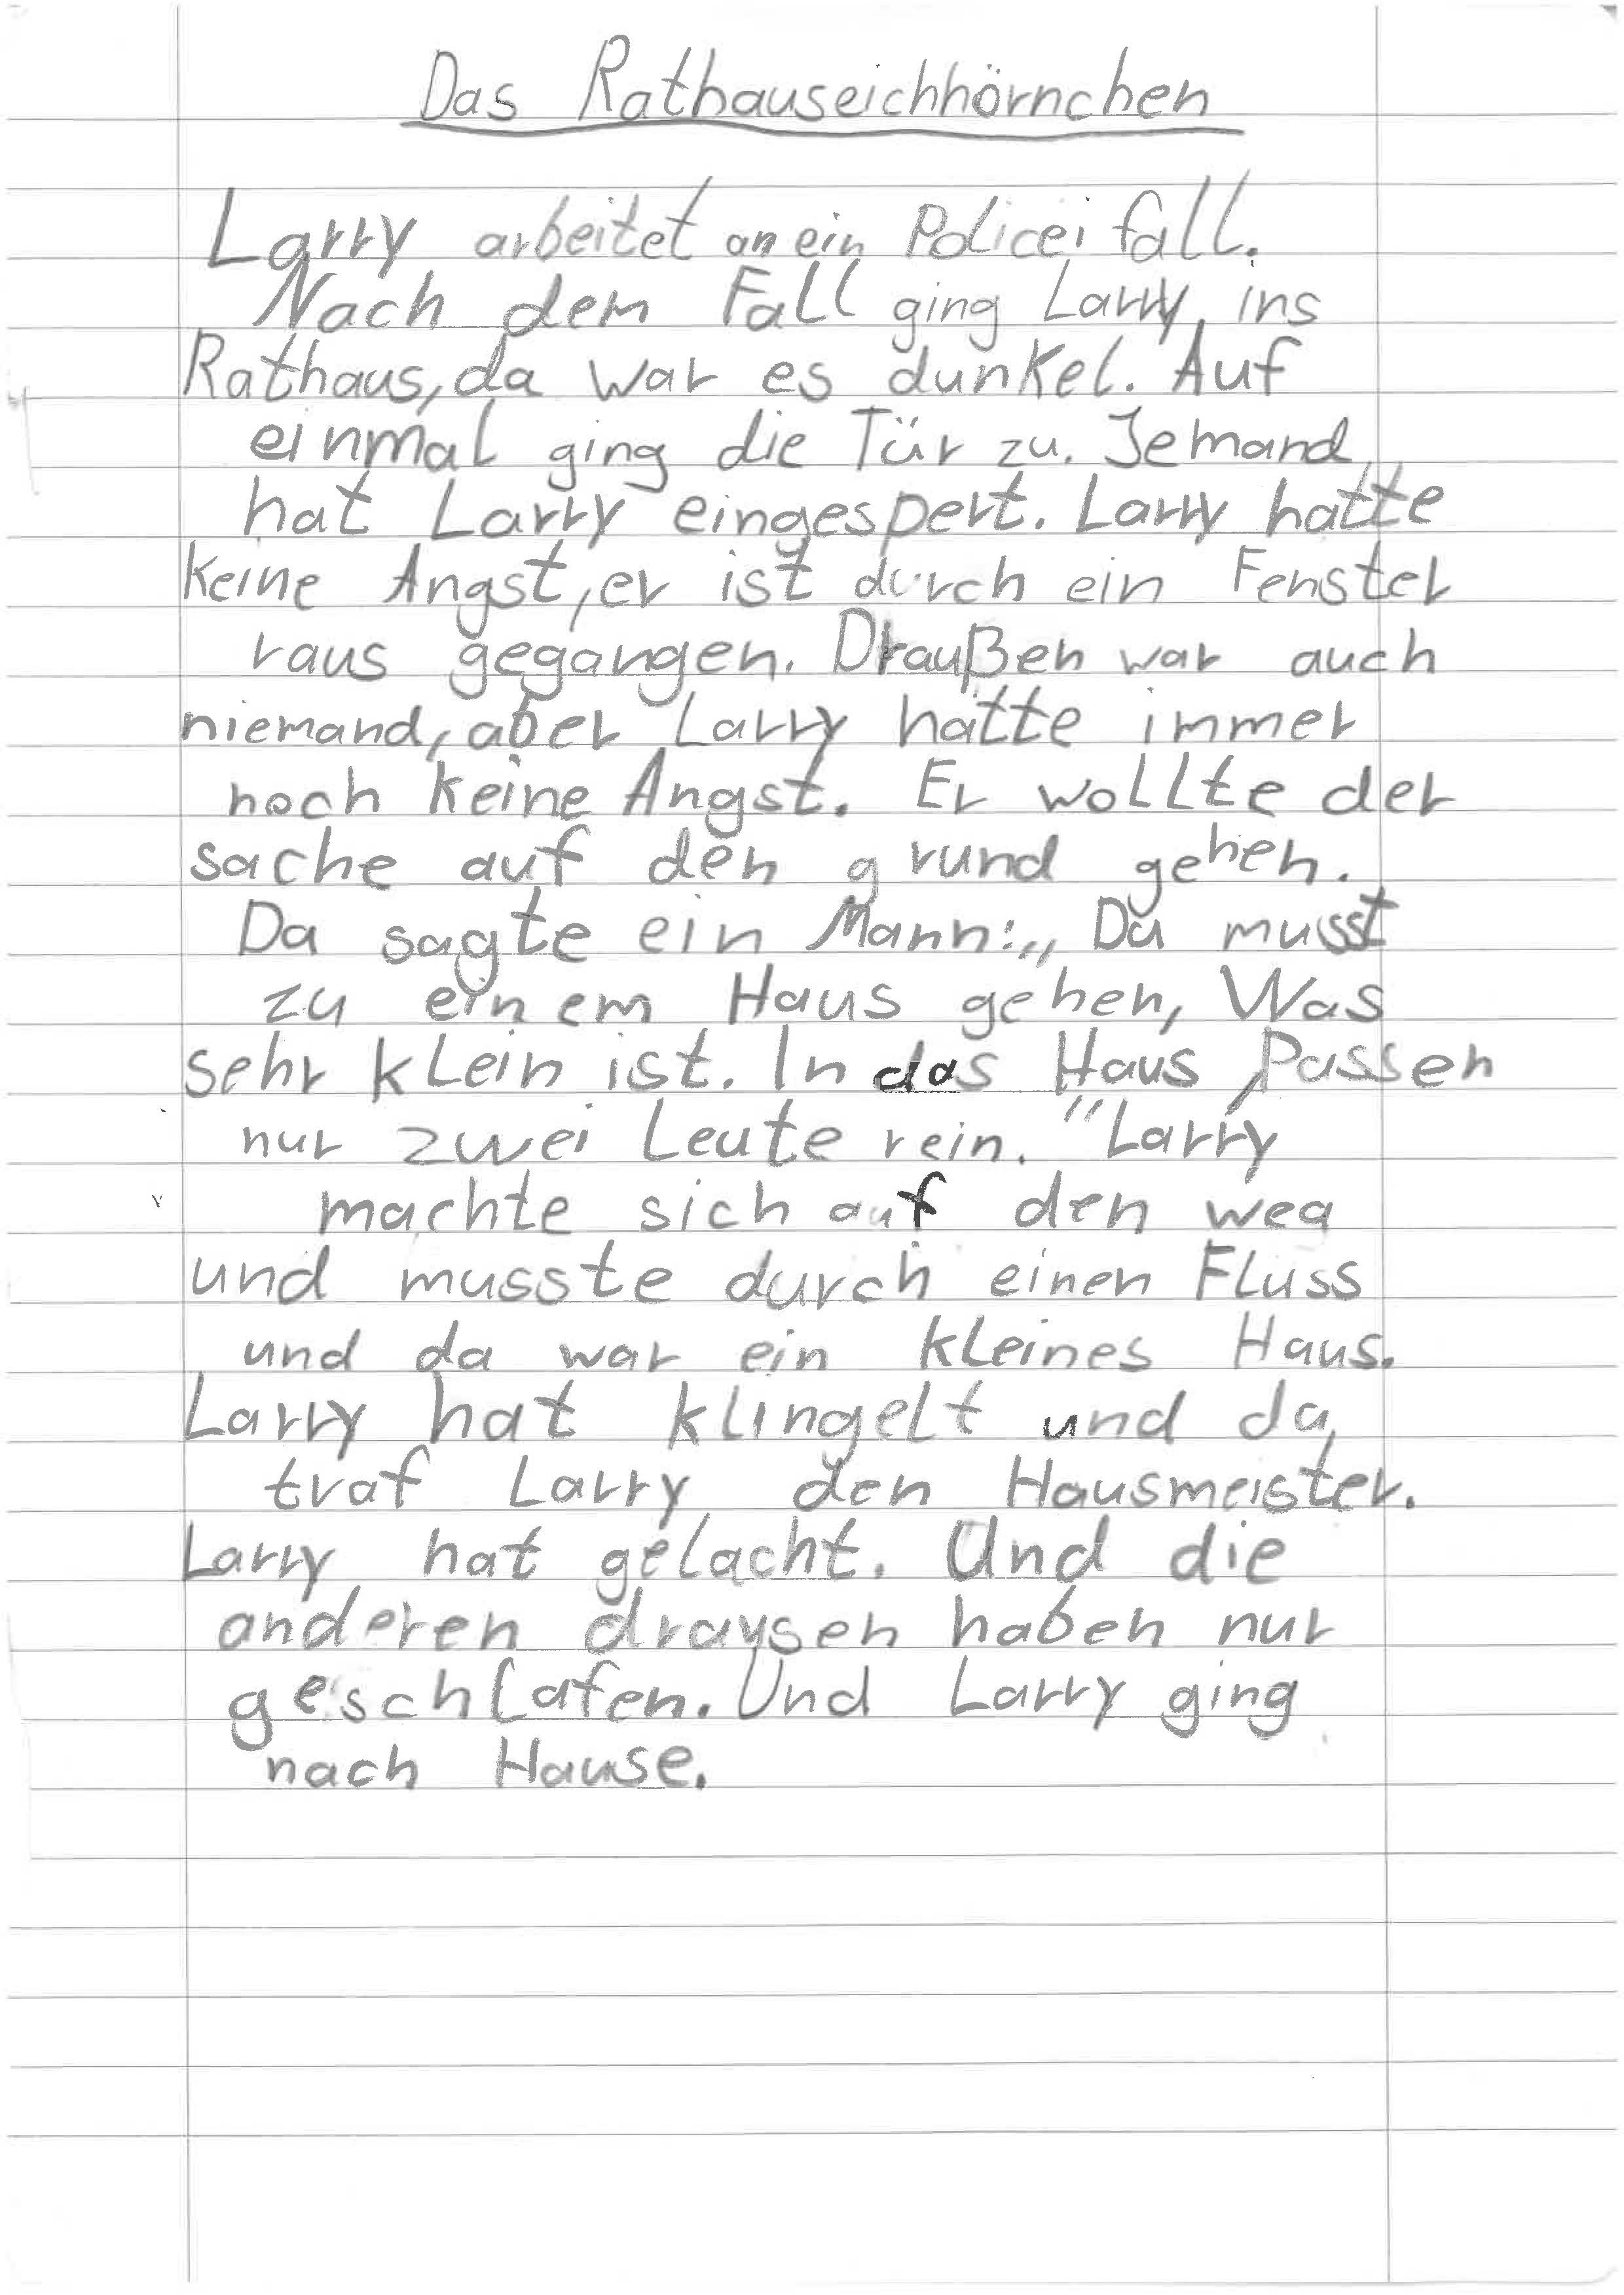 Das Rathauseichhörnchen
Larry arbeitet an ein Policei fall.
Nach dem Fall ging Larry ins
Rathaus, da war es dunkel. Auf
einmal ging die Tür zu. Jemand
hat Larry eingespert. Larry hatte
keine Angst, er ist durch ein Fenster
raus gegangen. Draußen war auch
niemand, aber Larry hatte immer
noch keine Angst. Er wollte der
sache auf den grund gehen.
Da sagte ein Mann: „Du musst
zu einem Haus gehen, Was
sehr klein ist. In das Haus Passen
nur zwei Leute rein. "Larry
machte sich auf den weg
und musste durch einen Fluss
und da war ein kleines Haus.
Larry hat klingelt und da
traf Larry den Hausmeister.
Larry hat gelacht. Und die
anderen draysen haben nur
geschlafen. Und Larry ging
nach Hause.